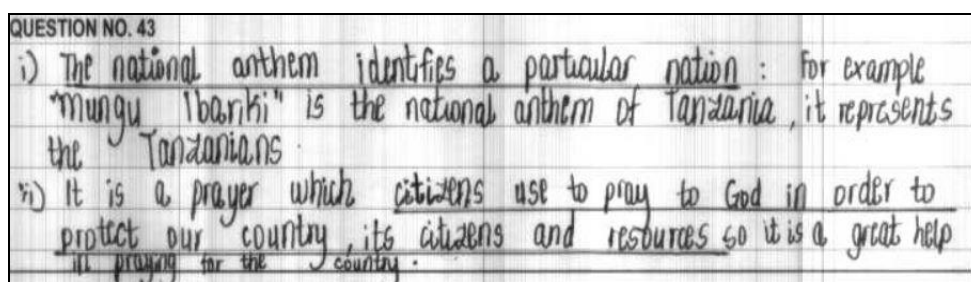 QUESTION NO. 43
i) The national anthem identifies a particular nation : For example
"Mungu Ibariki" is the national anthem of Tanzania, it represents
the Tanzanians.
ii) It is a prayer which citizens use to pray to God in order to
protect our country, its citizens and resources so it is a great help
in praying for the country.